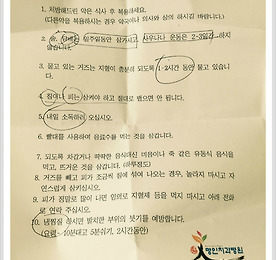 1. 처방해드린 약은 식사 후 복용하세요.
(다른약을 복용하시는 경우 약국이나 의사와 상의 하시길 바랍니다.)
2. 술, 담배는 일주일동안 삼가시고, 사우나나 운동은 2-3일간 하지
않습니다.
3. 물고 있는 거즈는 지혈이 충분히 되도록 1-2시간 동안 물고 있습니
다.
4. 침이나 피는 삼켜야 하고 절대로 뱉으면 안 됩니다.
5. 내일 소독하러 오십시오.
6. 빨대를 사용하여 음료수를 먹는 것을 삼갑니다.
7. 되도록 차갑거나 딱딱한 음식대신 미음이나 죽 같은 유동식 음식을
먹고, 뜨거운 것은 삼갑니다. (하루정도)
8. 거즈를 빼고 피가 조금씩 침에 섞여 나오는 경우, 놀라지 마시고 자
연스럽게 삼키십시오.
9. 피가 정말로 많이 나면 임의로 지혈제 등을 먹지 마시고 아래 전화
로 연락 주십시오.
10. 냉찜질 하시면 발치한 부위의 붓기를 예방합니다.
(요령- 10분대고 5분쉬기, 2시간동안)
명인치과병원